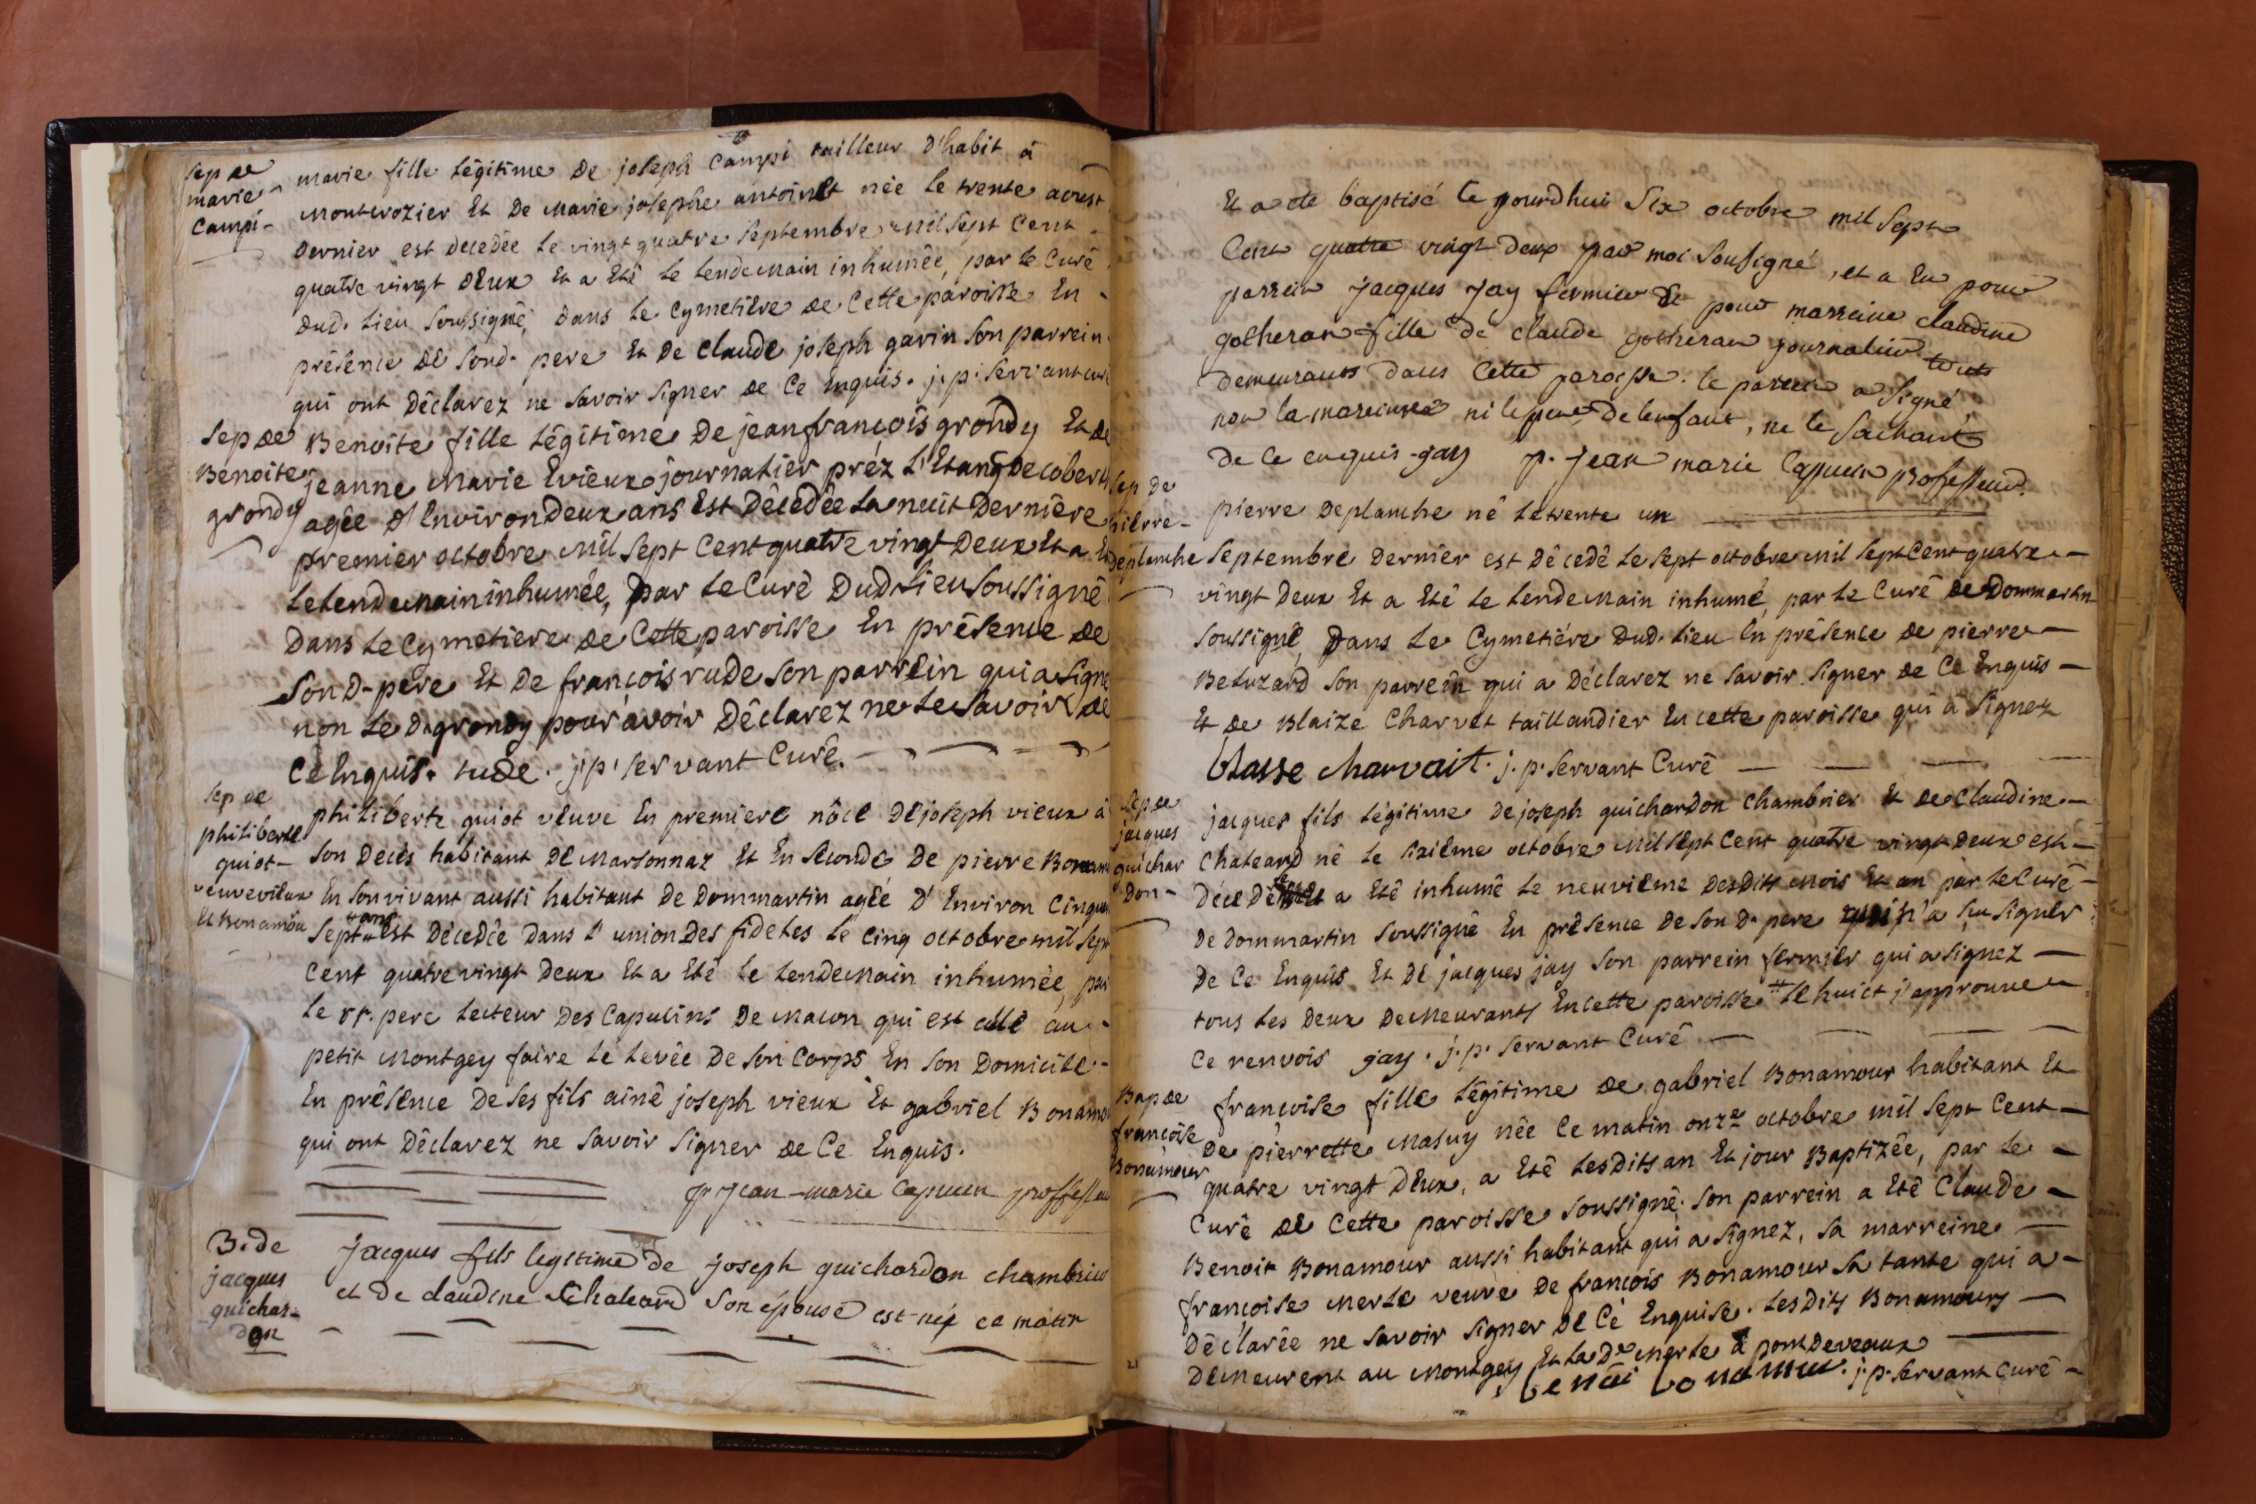 Sep de
marie
Campi-
marie fille légitime De joseph Campi tailleur D'habit à
Montcrozier Et De Marie josephe antoinet née le trente aoust
Dernier est décedée le vingt quatre Septembre Mil Sept Cent
quatre vingt Deux Et a Eté le lendemain inhumée, par le Curé
Dud. lieu Soussigné, Dans le Cymetiére de Cette paroisse En
présence de Sond. pere Et De Claude joseph gavin Son parrein
qui ont Déclarez ne Savoir Signer de Ce Enquis. j. p. Servant curé
Sep de
Benoite
grondy
Benoite fille légitime De jean françois grondy Et de
jeanne Marie Evieux journalier préz l'Etang De
agée D'Environ Deux ans Est Décedée la nuit Derniére
premier octobre Mil Sept Cent quatre vingt Deux Et a
le lendemain inhumée, par le Curé Dud. lieu Soussigné
Dans le Cymetiere de Cette paroisse En présence de
Son D. pere Et De françois rude Son parrein qui a Signé
non le D. grondy pour avoir Déclarez ne le Savoir de
Ce Enquis. rude. j. p. Servant Curé.
Sep de
philiberte
guiot-
veuve vieux
Et Bonamou
philiberte guiot veuve En premiere nôce De joseph vieux à
Son Decès habitant De Marsonnaz Et En Seconde De pierre Bonam
En Son vivant aussi habitant De Dommartin agée D'Environ Cinqua
Sept ans Est Décedée Dans l'union Des fideles le cinq octobre mil Sept
Cent quatre vingt Deux Et a Eté le lendemain inhumée, par
le rr. pere lecteur Des Capucins De Macon qui est allé au
petit Montgey faire le levée De Son Corps En Son Domicile.
En présence De Ses fils ainé joseph vieux Et gabriel Bonamo
qui ont Déclarez ne Savoir Signer de Ce Enquis.
fr jean-marie Capucin proffesseu
B. de
jacques
guichar-
don
jacques fils legitime de joseph guichardon chambrier
et de claudine Chateard Son épouse est né ce matin
Et a ete baptisé ce jourdhui Six octobre mil Sept
Cent quatre vingt deux par moi Soussigné, et a Eu pour
parrein jacques jay fermier Et pour marreine claudine
gotheran fille de claude gotheran journalier tous
demeurants dans Cette paroisse. le parrein a Signé
non la marreine ni le pere De lenfant, ne le Sachant
de ce enquis jay p. jean marie Capucin Professeur.
Sep de
pierre
Deplanche
pierre Deplanche né le trente un
Septembre Dernier est Décedé le Sept octobre Mil Sept Cent quatre
vingt Deux Et a Eté le lendemain inhumé, par le Curé de Dommartin
Soussigné, Dans le Cymetiére Dud. lieu En présence de pierre
Beluzard Son parrein qui a Déclarez ne Savoir Signer de Ce Enquis
Et de Blaize Charvet taillandier En cette paroisse qui a Signez
blasse charvait. j. p. Servant Curé
Sep de
jacques
guichar
Don-
jacques fils légitime De joseph guichardon Chambrier Et de Claudine
Chateard né le Sixiéme octobre Mil Sept Cent quatre vingt Deux est
Décedé a Eté inhumé le neuviéme Desdits Mois Et an par le Curé
De Dommartin Soussigné En présence De Son D. pere qui n'a Su Signer
De Ce Enquis Et De jacques jay Son parrein fermier qui a Signez
tous les Deux Demeurants En cette paroisse # le huict j'approuve
Ce renvois jay. j. p. Servant Curé
Bap de
françoise
Bonamour
françoise fille légitime de gabriel Bonamour habitant Et
De pierrette Masuy née Ce matin onze octobre Mil Sept Cent
quatre vingt Deux, a Eté lesdits an Et jour Baptizée, par le
Curé de Cette paroisse Soussigné. Son parrein a Eté Claude
Benoit Bonamour aussi habitant qui a Signez, Sa marreine
françoise Merle veuve De françois Bonamour Sa tante qui a
Déclarée ne Savoir Signer De Ce Enquise. lesdits Bonamours
Demeurent au Montgey Et la De Merle à pont Deveaux
benoi bonamour. j. p. Servant Curé